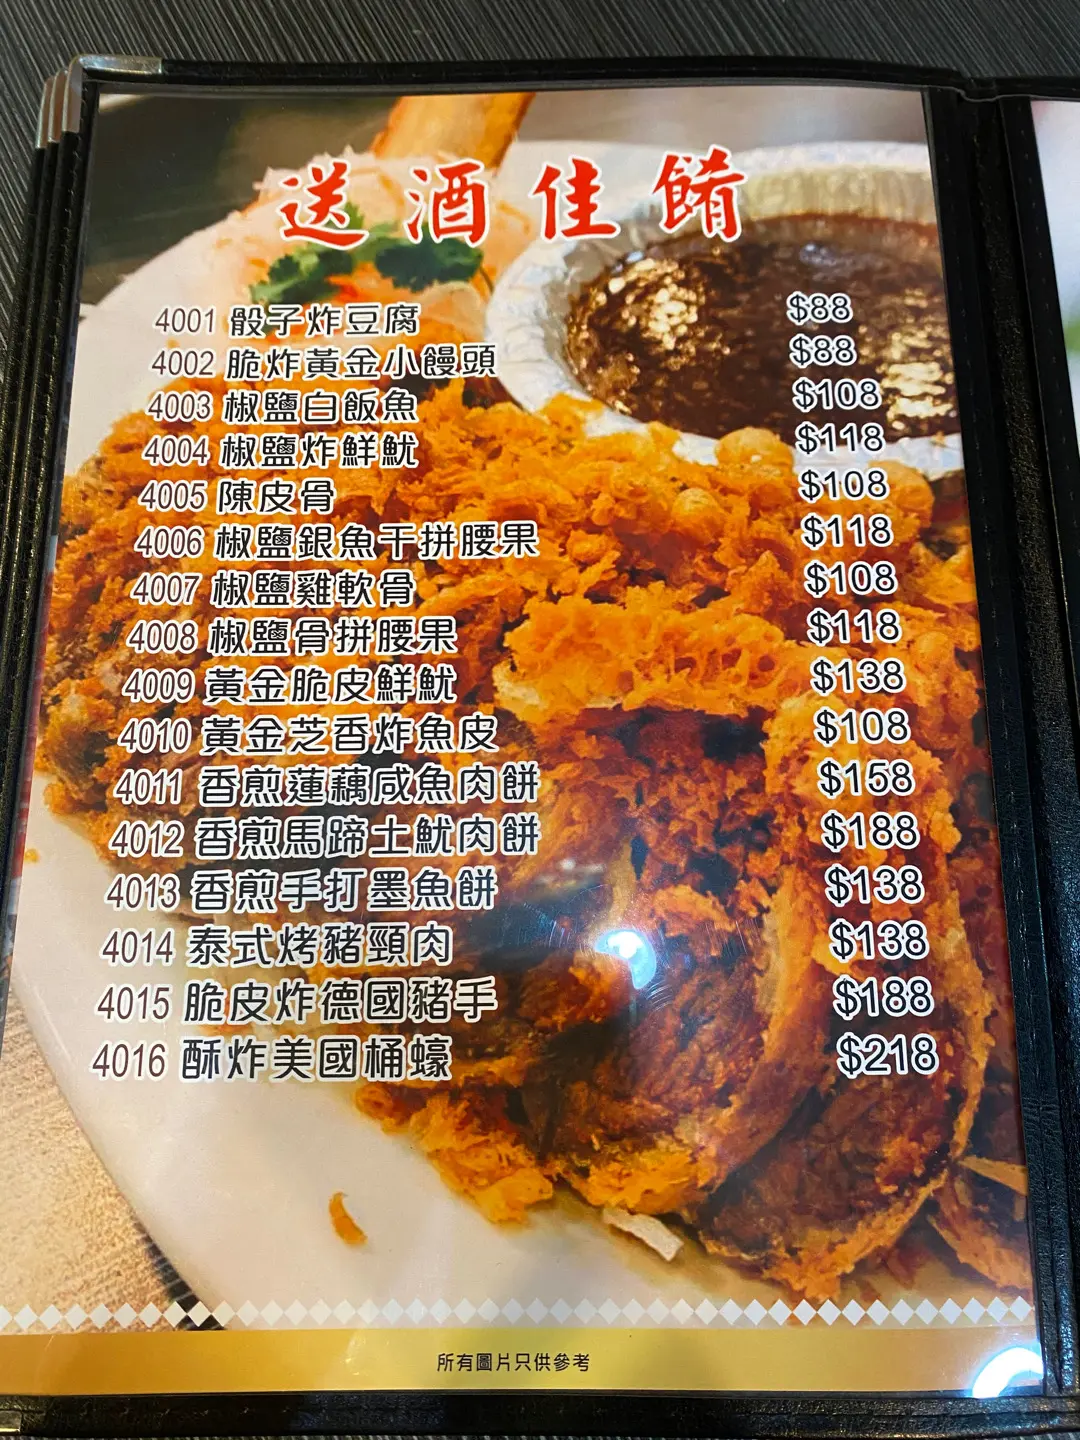 送酒佳餚
4001 骰子炸豆腐 $88
4002 脆炸黃金小饅頭 $88
4003 椒鹽白飯魚 $108
4004 椒鹽炸鮮魷 $118
4005 陳皮骨 $108
4006 椒鹽銀魚干拼腰果 $118
4007 椒鹽雞軟骨 $108
4008 椒鹽骨拼腰果 $118
4009 黃金脆皮鮮魷 $138
4010 黃金芝香炸魚皮 $108
4011 香煎蓮藕咸魚肉餅 $158
4012 香煎馬蹄土魷肉餅 $188
4013 香煎手打墨魚餅 $138
4014 泰式烤豬頸肉 $138
4015 脆皮炸德國豬手 $188
4016 酥炸美國桶蠔 $218
所有圖片只供參考